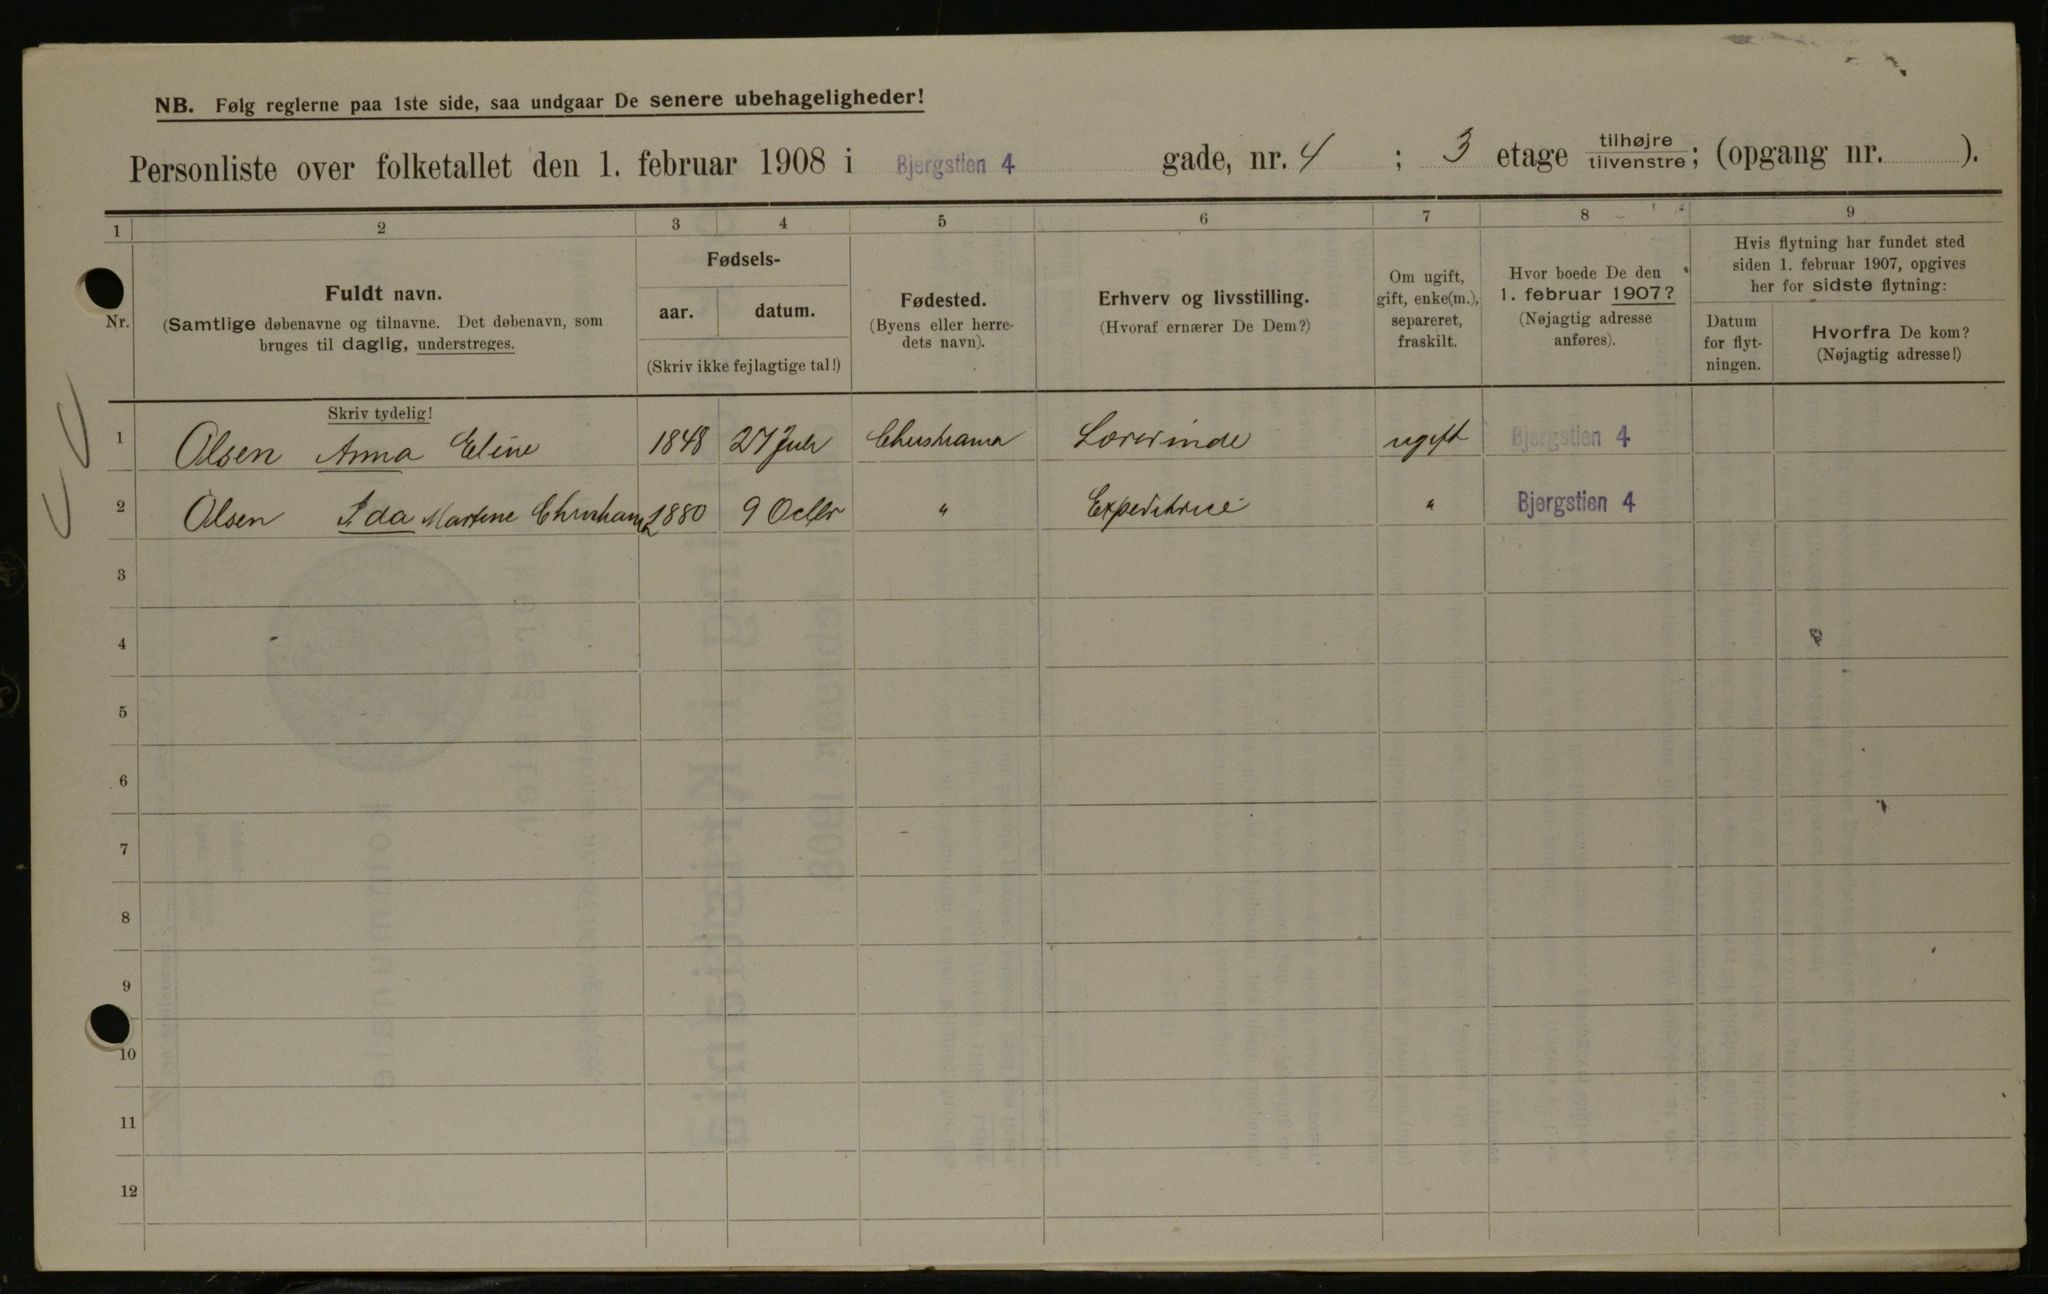 NB. Følg reglerne paa 1ste side, saa undgaar De senere ubehageligheder!
Personliste over folketallet den 1. februar 1908 i Bjergstien 4 gade, nr. 4 ; 3 etage tilhøjre tilvenstre; (opgang nr. ).
1 2 3 4 5 6 7 8 9
Nr.
Fuldt navn.
(Samtlige døbenavne og tilnavne. Det døbenavn, som
bruges til daglig, understreges.
Skriv tydelig!
Fødsels-
aar. datum.
(Skriv ikke fejlagtige tal!)
Fødested.
(Byens eller herre-
dets navn).
Erhverv og livsstilling.
(Hvoraf ernærer De Dem?)
Om ugift,
gift, enke(m.),
separeret,
fraskilt.
Hvor boede De den
1. februar 1907?
(Nøjagtig adresse
anføres).
Hvis flytning har fundet sted
siden 1. februar 1907, opgives
her for sidste flytning:
Datum
for flyt-
ningen.
Hvorfra De kom?
(Nøjagtig adresse!)
1 Olsen Anna Eline 1848 27 Juli Christiania Lærerinde ugift Bjergstien 4
2 Olsen Ida Martine 1880 9 Octbr " Expeditrice " Bjergstien 4
3
4
5
6
7
8
9
10
11
12